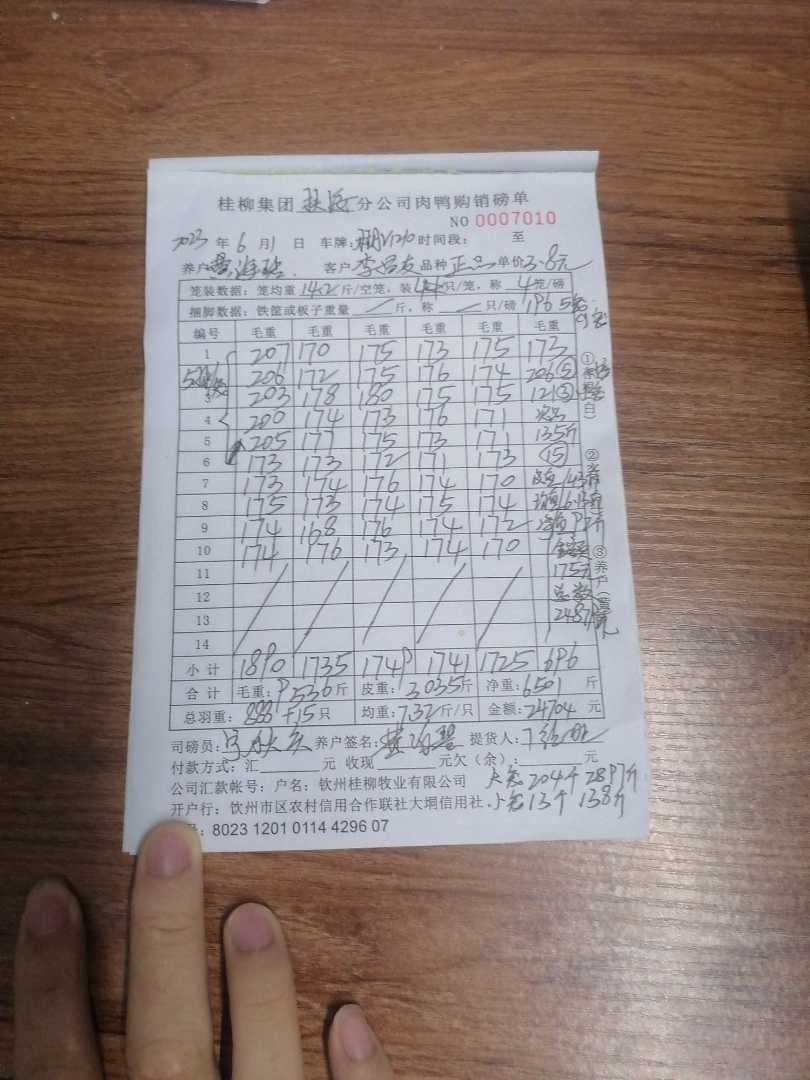 桂柳集团 扶 分公司肉鸭购销磅单
NO 0007010
2023 年 6 月 1 日 车牌: 时间段: 至
养户 客户 李 品种 正品 单价 3.8元
笼装数据: 笼均重 14.2 斤/空笼, 装 只/笼, 称 4 笼/磅
捆脚数据: 铁筐或板子重量 / 斤, 称 / 只/磅 196
编号 毛重 毛重 毛重 毛重 毛重 毛重
1 207 170 175 173 175 173
206 172 175 176 174 206 ⑤
3 203 178 180 175 175 121 ③
4 200 174 173 176 171
5 205 177 175 173 171 135斤
6 173 173 172 171 173 ⑮
7 173 174 176 174 170
8 175 173 174 175 174
9 174 168 176 174 172
10 174 176 173 174 170
11 / / / / / 175元
12 总数
13
14
小计 1890 1735 1749 1741 1725 696
合计 毛重: 9536 斤 皮重: 3035 斤 净重: 6501 斤
总羽重: 888+15 只 均重: 7.32 斤/只 金额: 24704 元
①
白)
②
③养户(
司磅员: 养户签名: 提货人:
付款方式: 汇 元 收现 元欠(余): 元
公司汇款帐号: 户名: 钦州桂柳牧业有限公司 大笼 204个 2897斤
开户行: 钦州市区农村信用合作联社大垌信用社. 小笼 13个 138斤
: 8023 1201 0114 4296 07